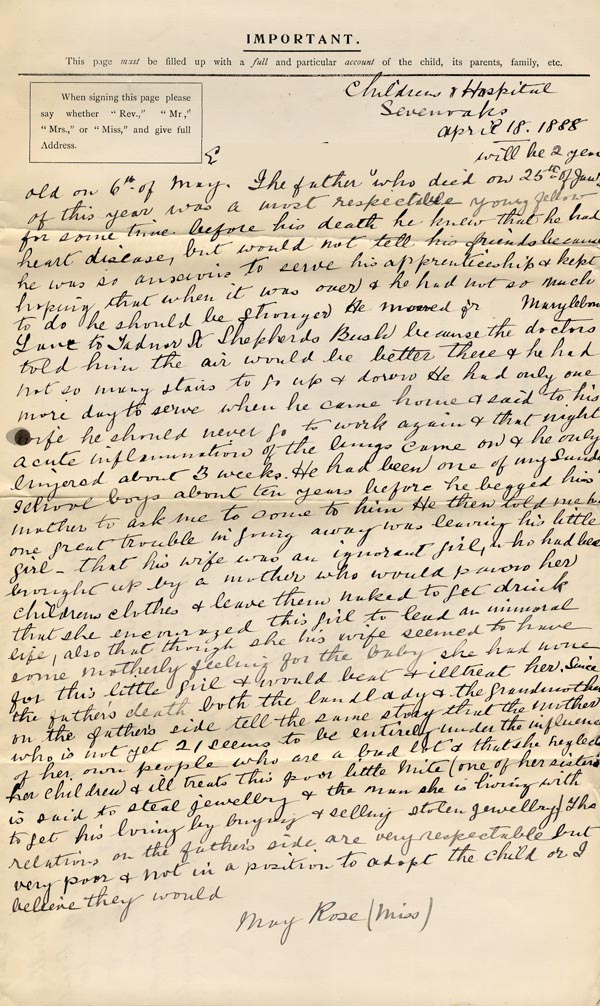 IMPORTANT.
This page must be filled up with a full and particular account of the child, its parents, family, etc.
When signing this page please
say whether "Rev.," "Mr,"
"Mrs.," or "Miss," and give full
Address.
Childrens Hospital
Sevenoaks
April 18. 1888
E will be 2 years
old on 6th of May. The father who died on 25th of Jany
of this year was a most respectable young fellow
for some time before his death he knew that he had
heart disease, but would not tell his friends because
he was so anxious to serve his apprenticeship & kept
hoping that when it was over & he had not so much
to do he should be stronger He moved fr Marylebone
Lane to Tadnor St Shepherds Bush because the doctors
told him the air would be better there & he had
not so many stairs to go up & down He had only one
more day to serve when he came home & said to his
wife he should never go to work again & that night
acute inflammation of the lungs came on & he only
lingered about 3 weeks. He had been one of my Sunday
School boys about ten years before he begged his
mother to ask me to come to him He then told me his
one great trouble in going away was leaving his little
girl - that his wife was an ignorant girl, who had been
brought up by a mother who would pawn her
childrens clothes & leave them naked to get drink
that she encouraged this girl to lead an immoral
life, also that though she his wife seemed to have
some motherly feeling for the baby she had none
for this little girl & would beat & illtreat her. Since
the father's death both the landlady & the grandmother
on the father's side tell the same story that the mother
who is not yet 21 seems to be entirely under the influence
of her own people who are a bad lot & that she neglects
her children & ill treats this poor little mite (one of her sisters
is said to steal jewellery & the man she is living with
to get his living by buying & selling stolen jewellery) The
relations on the father's side are very respectable but
very poor & not in a position to adopt the child or I
believe they would
May Rose (Miss)